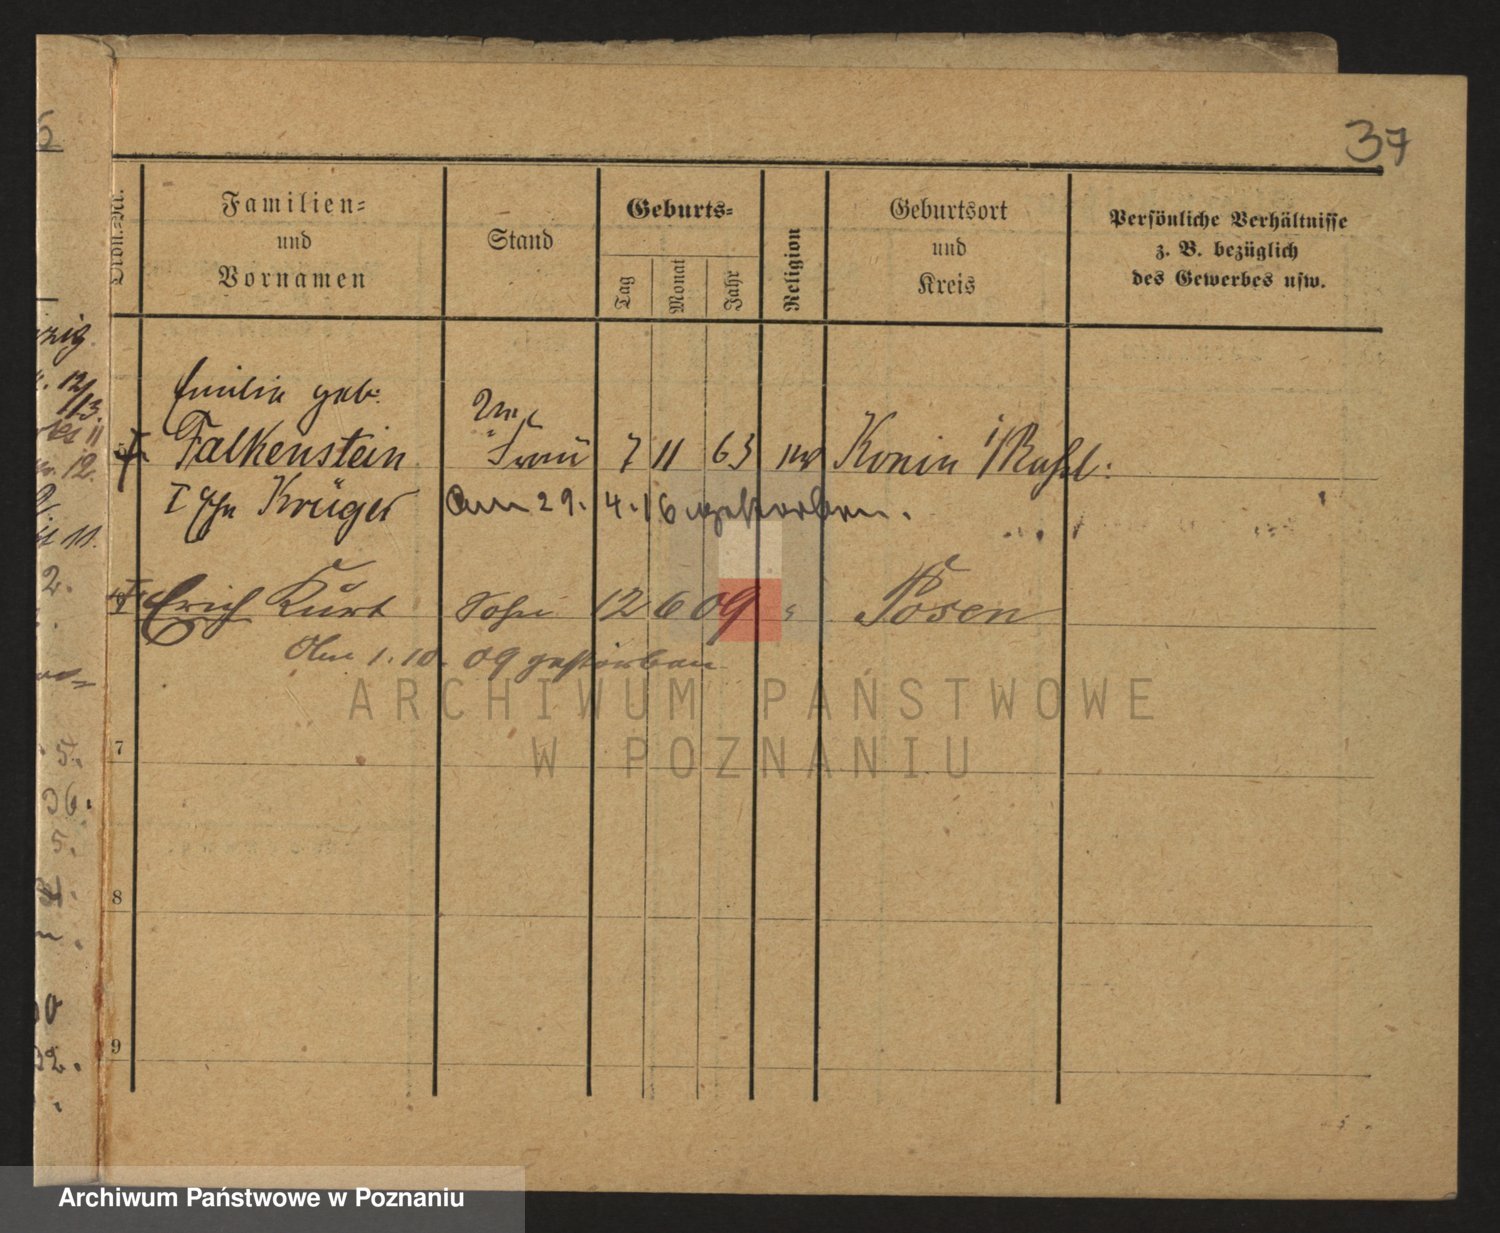 37
Ordn.-Nr.
Familien-
und
Vornamen
Stand
Geburts-
Tag
Monat
Jahr
Religion
Geburtsort
und
Kreis
Persönliche Verhältnisse
z. B. bezüglich
des Gewerbes usw.
Emilie geb.
Falkenstein Frau 7 11 63 Konin
I Krüger Am 29. 4. 16 gestorben.
Erich Kurt Sohn 12 6 09 " Posen
Am 1. 10. 09 gestorben
ARCHIWUM PAŃSTWOWE
W POZNANIU
7
8
9
5.
36.
5.
Archiwum Państwowe w Poznaniu